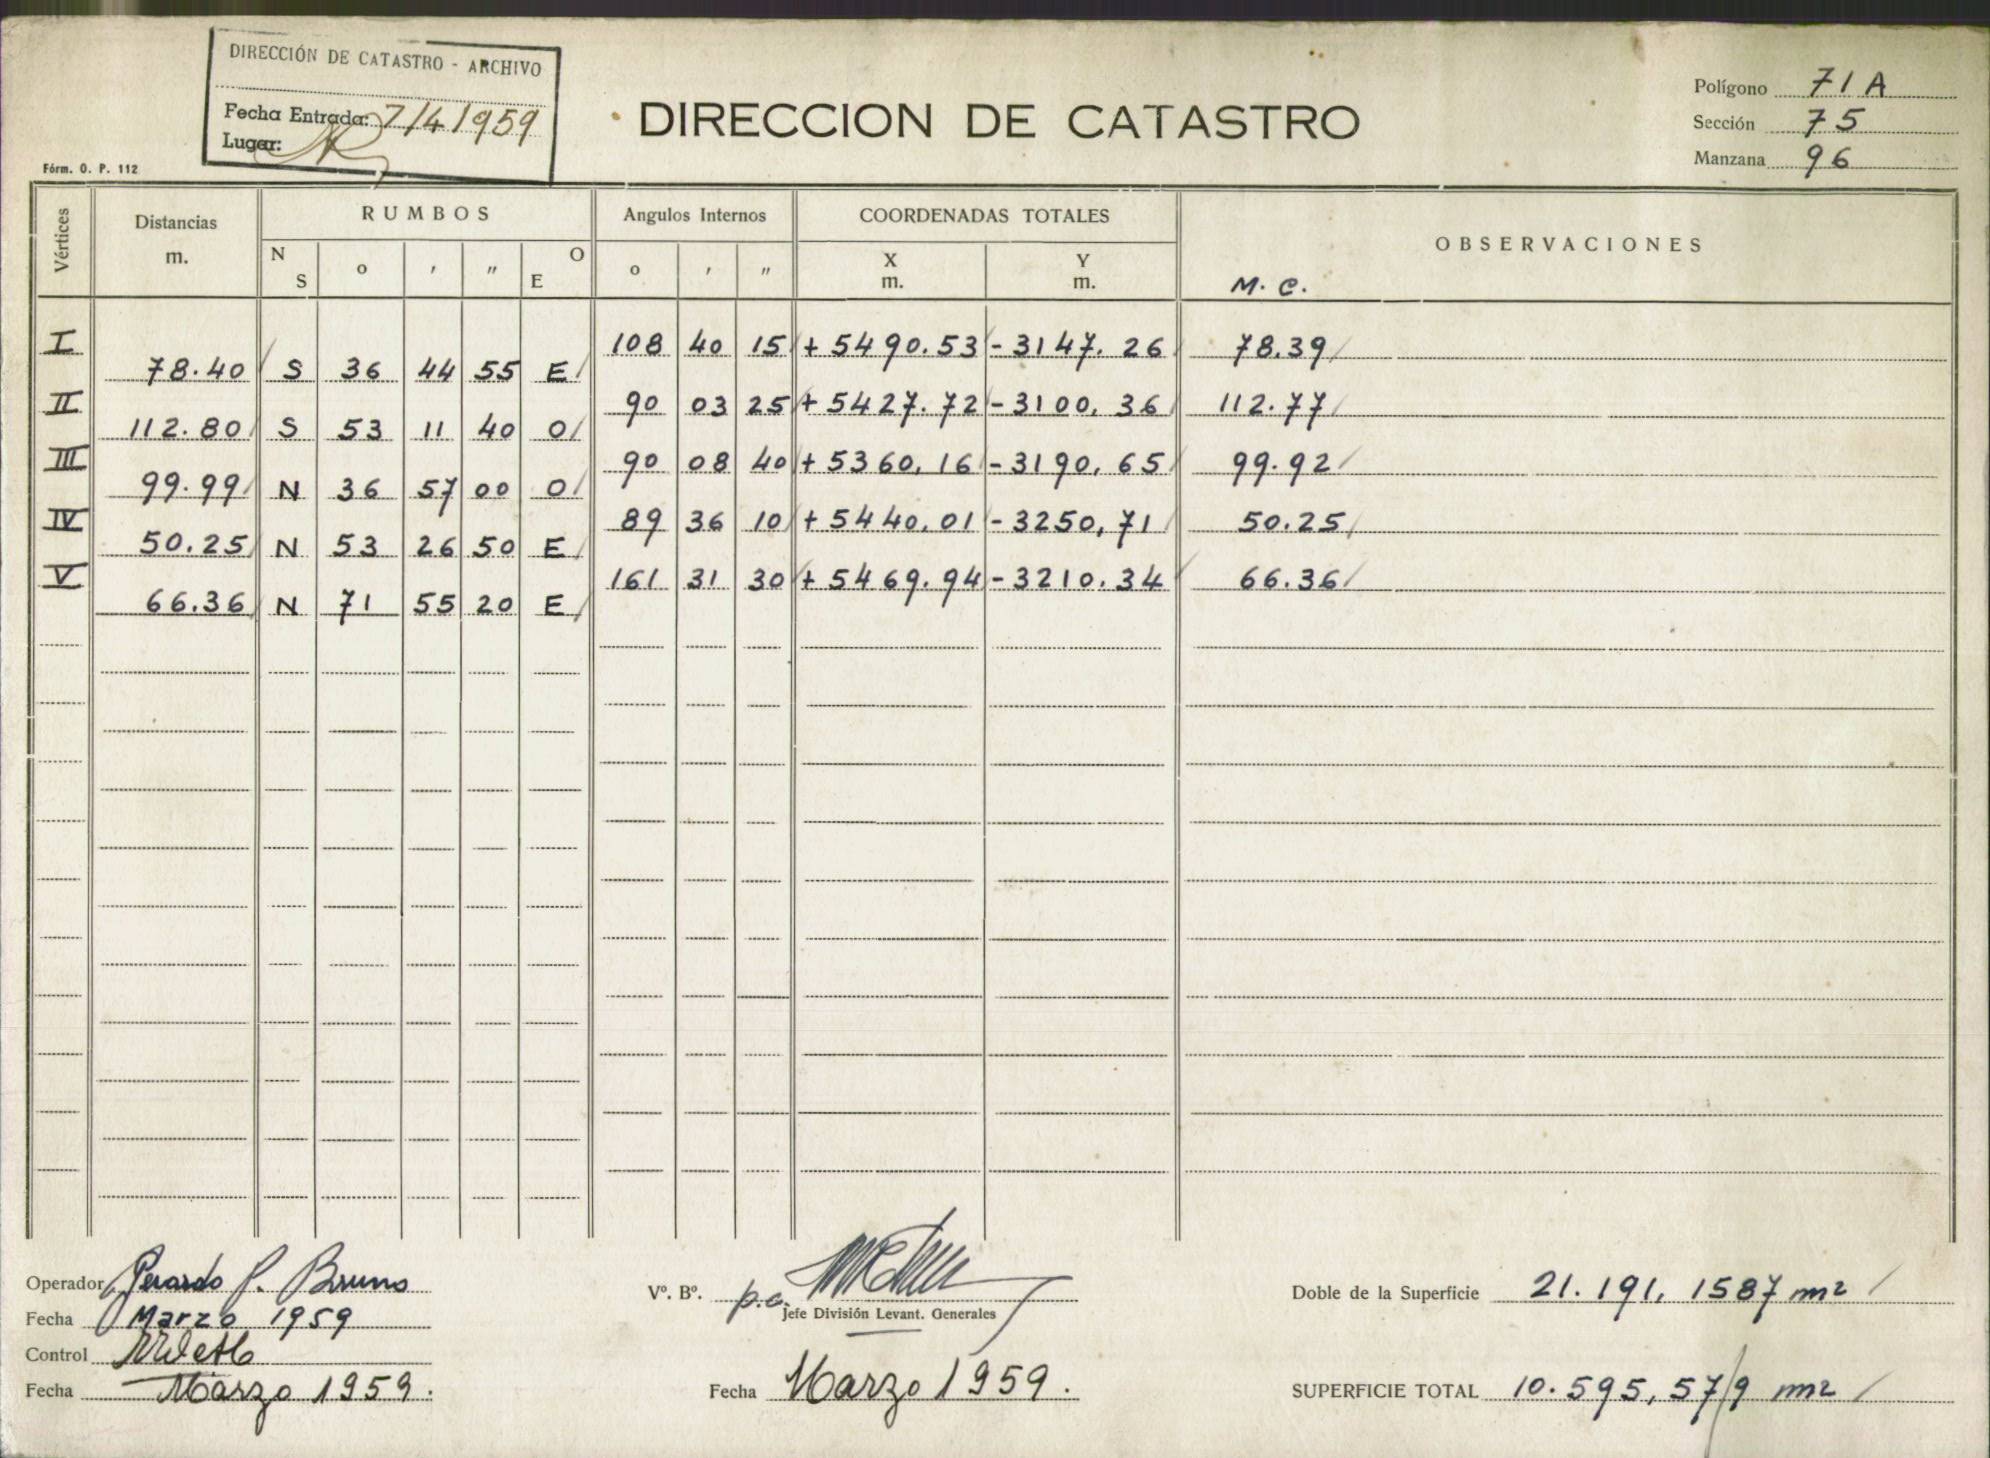 DIRECCIÓN DE CATASTRO - ARCHIVO
Fecha Entrada: 7/4/1959
Lugar:
Fórm. O. P. 112
DIRECCION DE CATASTRO
Polígono 71A
Sección 75
Manzana 96
Vértices
Distancias m.
RUMBOS
N S o ' " O E
Angulos Internos
o ' "
COORDENADAS TOTALES
X m. Y m.
OBSERVACIONES
M. C.
I 108 40 15 + 5490.53 - 3147.26 78.39
78.40 S 36 44 55 E
II 90 03 25 + 5427.72 - 3100,36 112.77
112.80 S 53 11 40 O
III 90 08 40 + 5360,16 - 3190,65 99.92
99.99 N 36 57 00 O
IV 89 36 10 + 5440,01 - 3250,71 50.25
50.25 N 53 26 50 E
V 161 31 30 + 5469.94 - 3210.34 66.36
66.36 N 71 55 20 E
Operador Gerardo P. Bruno
Fecha Marzo 1959
Control
Fecha Marzo 1959.
Vº. Bº. p.a.
Jefe División Levant. Generales
Fecha Marzo 1959.
Doble de la Superficie 21.191,1587 m2
SUPERFICIE TOTAL 10.595,57/9 m2